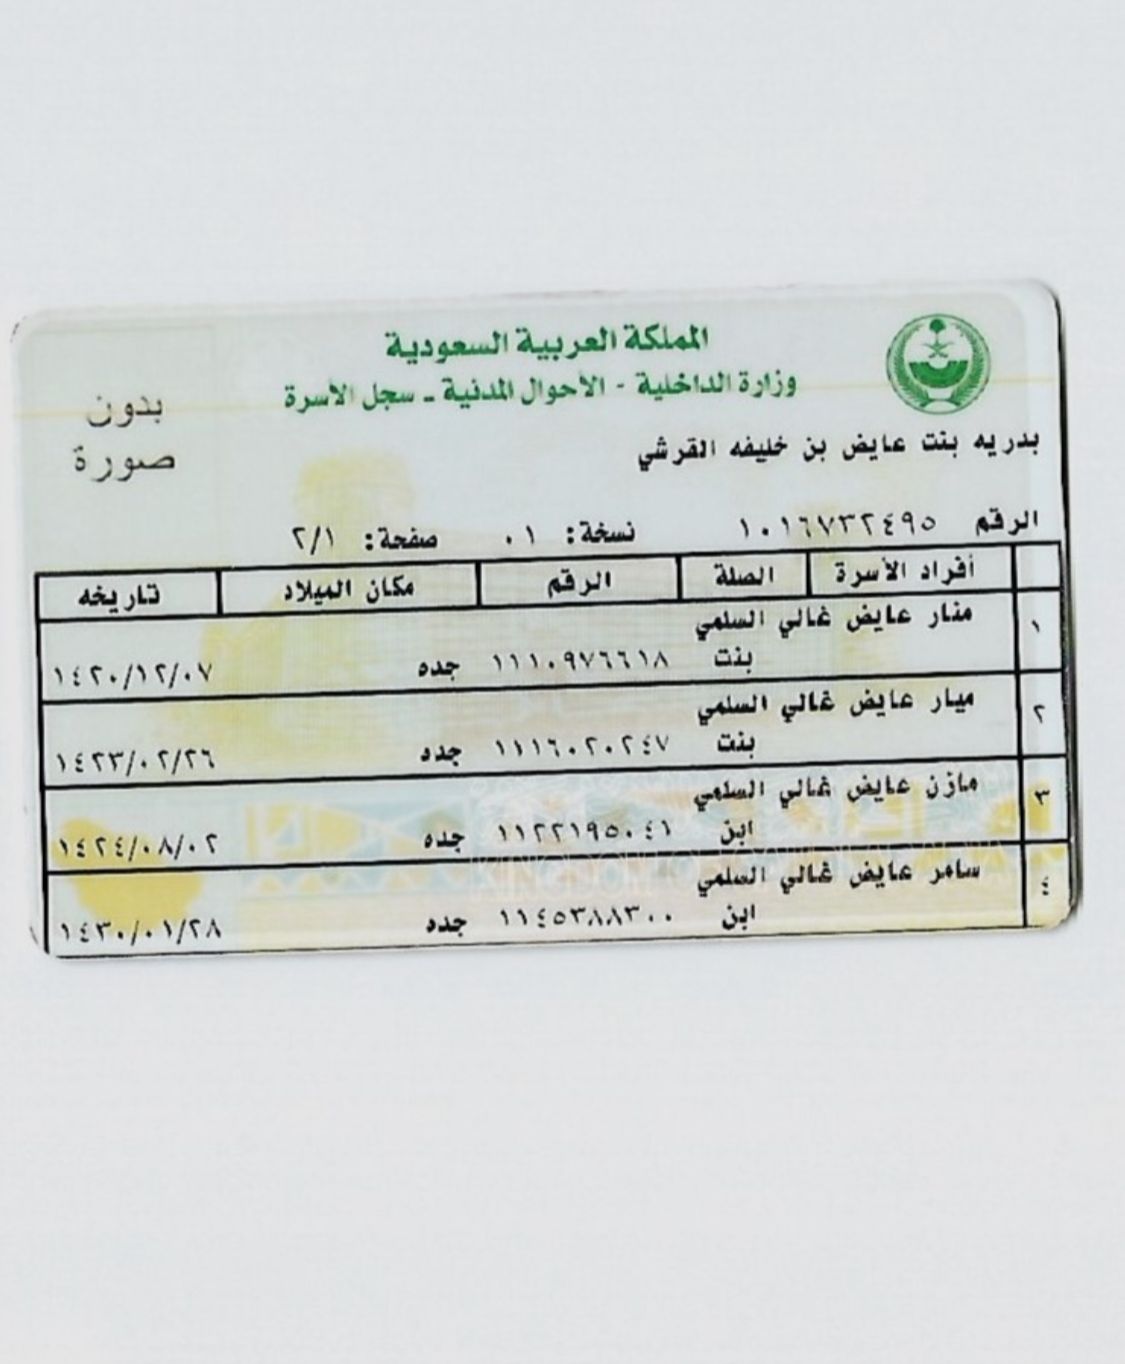 المملكة العربية السعودية
وزارة الداخلية - الأحوال المدنية - سجل الأسرة
بدون
صورة
بدريه بنت عايض بن خليفه القرشي
الرقم ١٠١٦٧٣٢٤٩٥ نسخة: ٠١ صفحة: ٢/١
أفراد الأسرة الصلة الرقم مكان الميلاد تاريخه
١ منار عايض غالي السلمي
بنت ١١١٠٩٧٦٦١٨ جده ١٤٢٠/١٢/٠٧
٢ ميار عايض غالي السلمي
بنت ١١١٦٠٢٠٢٤٧ جده ١٤٢٣/٠٢/٢٦
٣ مازن عايض غالي السلمي
ابن ١١٢٢١٩٥٠٤١ جده ١٤٢٤/٠٨/٠٢
٤ سامر عايض غالي السلمي
ابن ١١٤٥٣٨٨٣٠٠ جده ١٤٣٠/٠١/٢٨